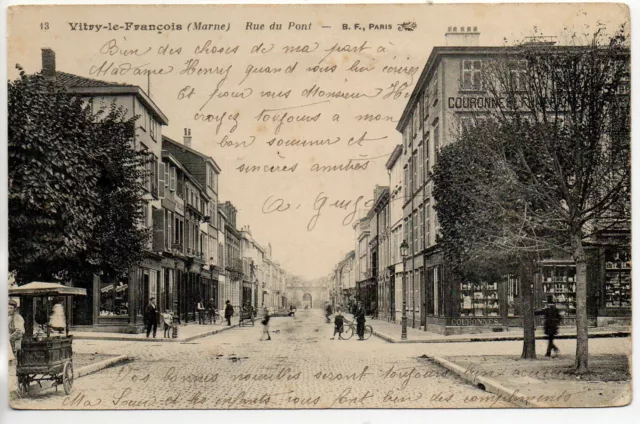 13 Vitry-le-François (Marne) Rue du Pont — B. F., PARIS
Bien des choses de ma part à
Madame Henry quand vous lui
Et pour mes Monsieur
croyez toujours à mon
bon souvenir et
sincères amitiés
A.
COURONNES
COURONNES
Vos bonnes nouvelles seront toujours
Ma Sœur et les enfants vous font bien des compliments